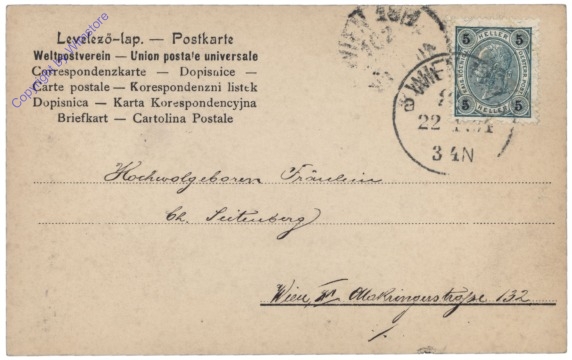 Levelező-lap. — Postkarte
Weltpostverein — Union postale universelle
Correspondenzkarte — Dopisnice —
Carte postale — Korespondenzni listek
Dopisnica — Karta Korespondencyjna
Briefkart — Cartolina Postale
Copyright by Wr.store
HELLER
5 5
5 5
HELLER
WIEN
22
3 4N
Hochwolgeboren Fräulein
Ch. Seitenberg
Wien, Ottakringerstraße 132